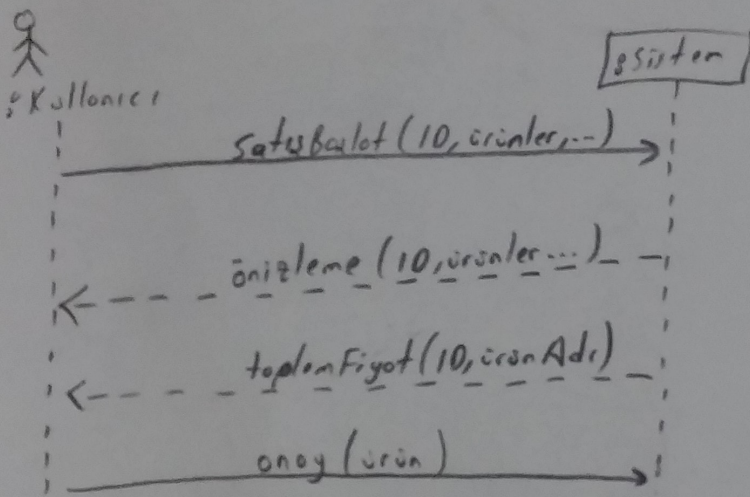 :Kullanıcı
:Sistem
SatışBaşlat(ID, ürünler,...)
önizleme(ID, ürünler...)
toplamFiyat(ID, ürünAdı)
onay(ürün)